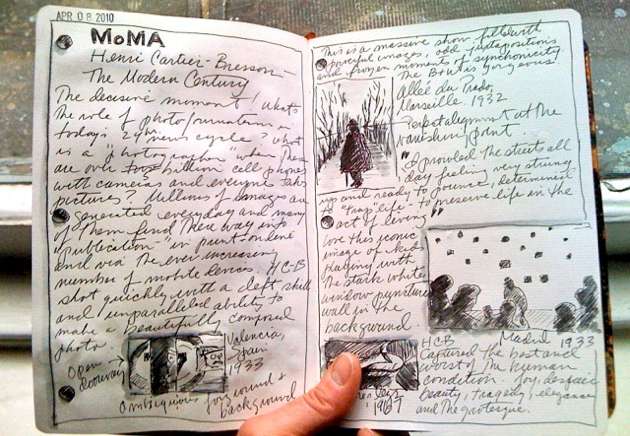 APR 08 2010
MoMA
Henri Cartier-Bresson-
The Modern Century
The decisive moment! What's
the role of photojournalism in
today's 24hr news cycle? What
is a "photographer" when there
are over billion cell phones
with cameras and everyone takes
pictures? Millions of images are
generated everyday and many
of them find there way into
"publication" in print online
and via the ever increasing
number of mobile devices. H C-B
shot quickly with a deft skill
and unparalleled ability to
make a beautifully composed
photo.
Valencia,
Spain
1933
Open
doorway
Ambiguous foreground &
background
This is a massive show filled with
powerful images, odd juxtapositions
and frozen moments of synchonicity.
The Prints gorgeous!
Allée du Prado,
Marseille 1932
Perfect alignment at the
vanishing point.
"I prowled the streets all
day feeling very strung
up and ready to pounce, determined
to "trap" life - to preserve life in the
act of living"
love this iconic
image of kids
playing with
the stark white
window punctured
wall in the
background.
HCB Madrid 1933
Captured the best and
worst of the human
condition. Joy, despair
beauty, tragedy, elegance
and the grotesque.
1967